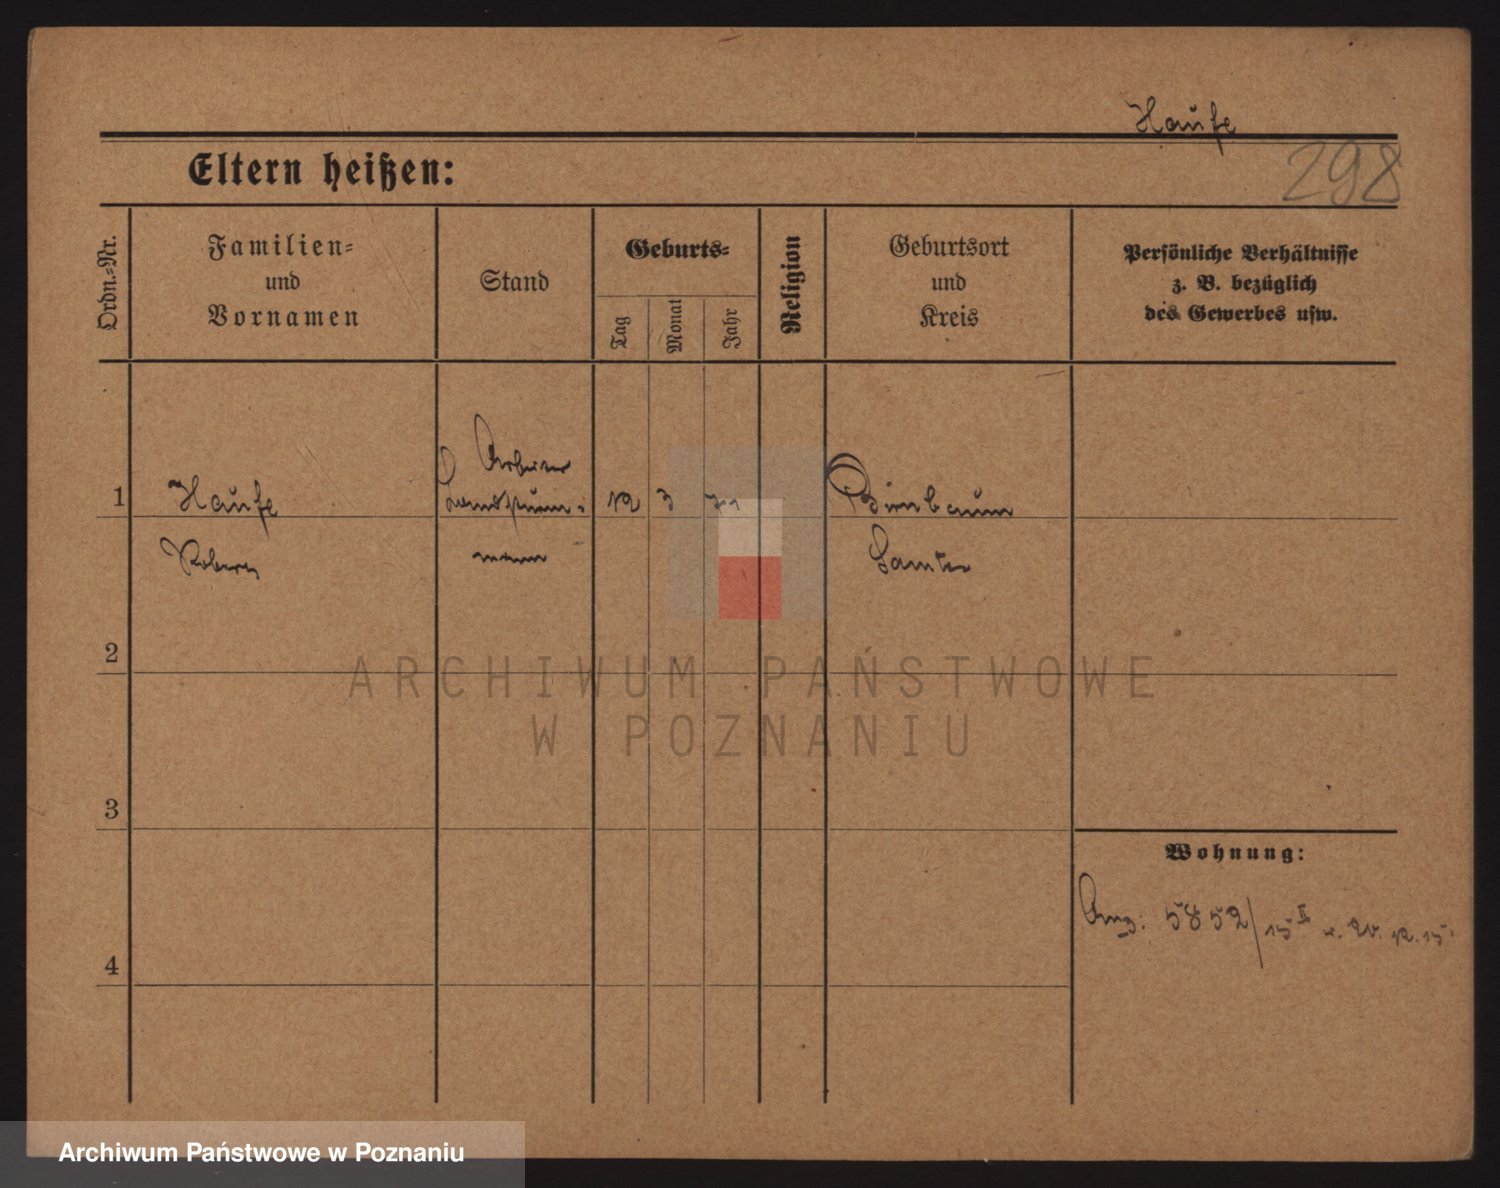 Haufe
298
Eltern heißen:
Ordn.=Nr.
Familien=
und
Vornamen
Stand
Geburts=
Tag
Monat
Jahr
Religion
Geburtsort
und
Kreis
Persönliche Verhältnisse
z. B. bezüglich
des Gewerbes usw.
1
Haufe
Robert
Arbeiter
Landsturm=
mann
12
3
71
Birnbaum
Samter
2
3
4
Wohnung:
Ang: 5852/15 II v. 20.12.15.
ARCHIWUM PAŃSTWOWE
W POZNANIU
Archiwum Państwowe w Poznaniu